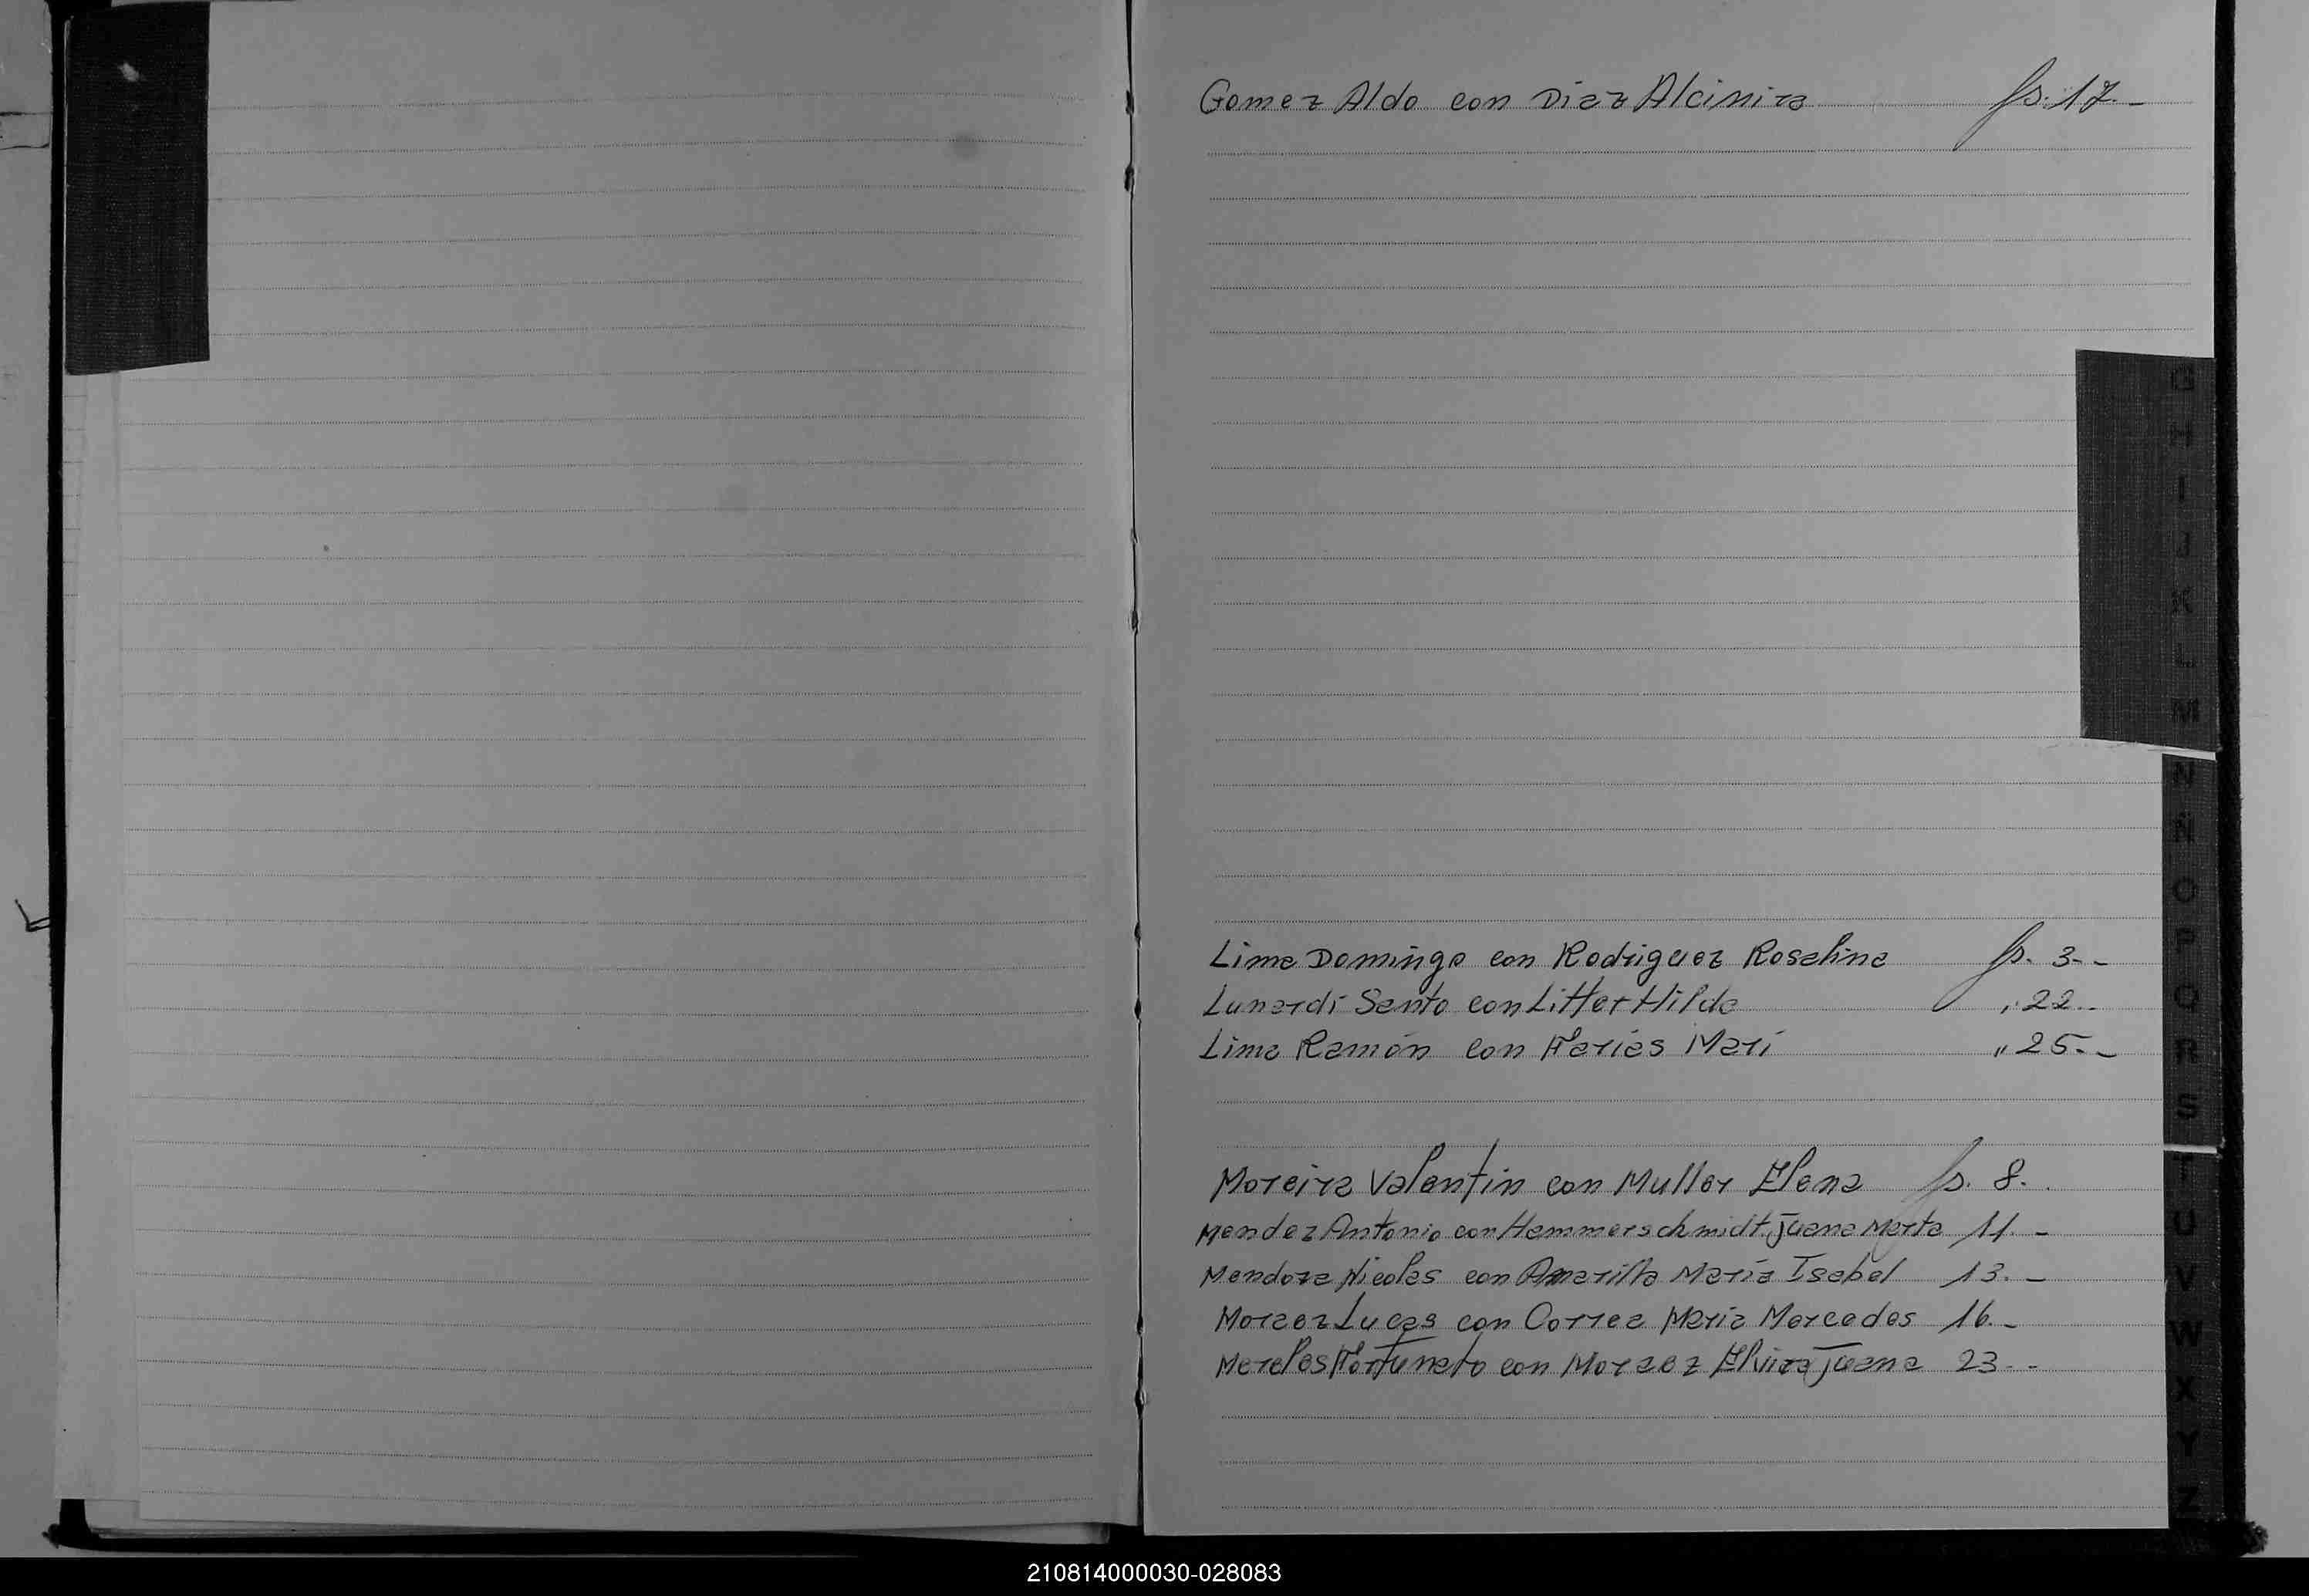 Gomez Aldo con Diaz Alcinira fs. 17.-
G
H
I
J
K
L
M
N
Ñ
O
P
Q
R
S
Lima Domingo con Rodriguez Rosalina fs. 3.-
Lunardi Santo con Litter Hilda " 22.-
Lima Ramón con Farias Mari " 25.-
Moreira Valentin con Muller Elena fs. 8.
Mendez Antonio con Hammerschmidt Juana Marta 11.-
Mendoza Nicolas con Amarilla María Isabel 13.-
Moraez Lucas con Correa Maria Mercedes 16.-
Mereles Fortunato con Moraez Elvira Juana 23.-
T
U
V
W
X
Y
Z
210814000030-028083